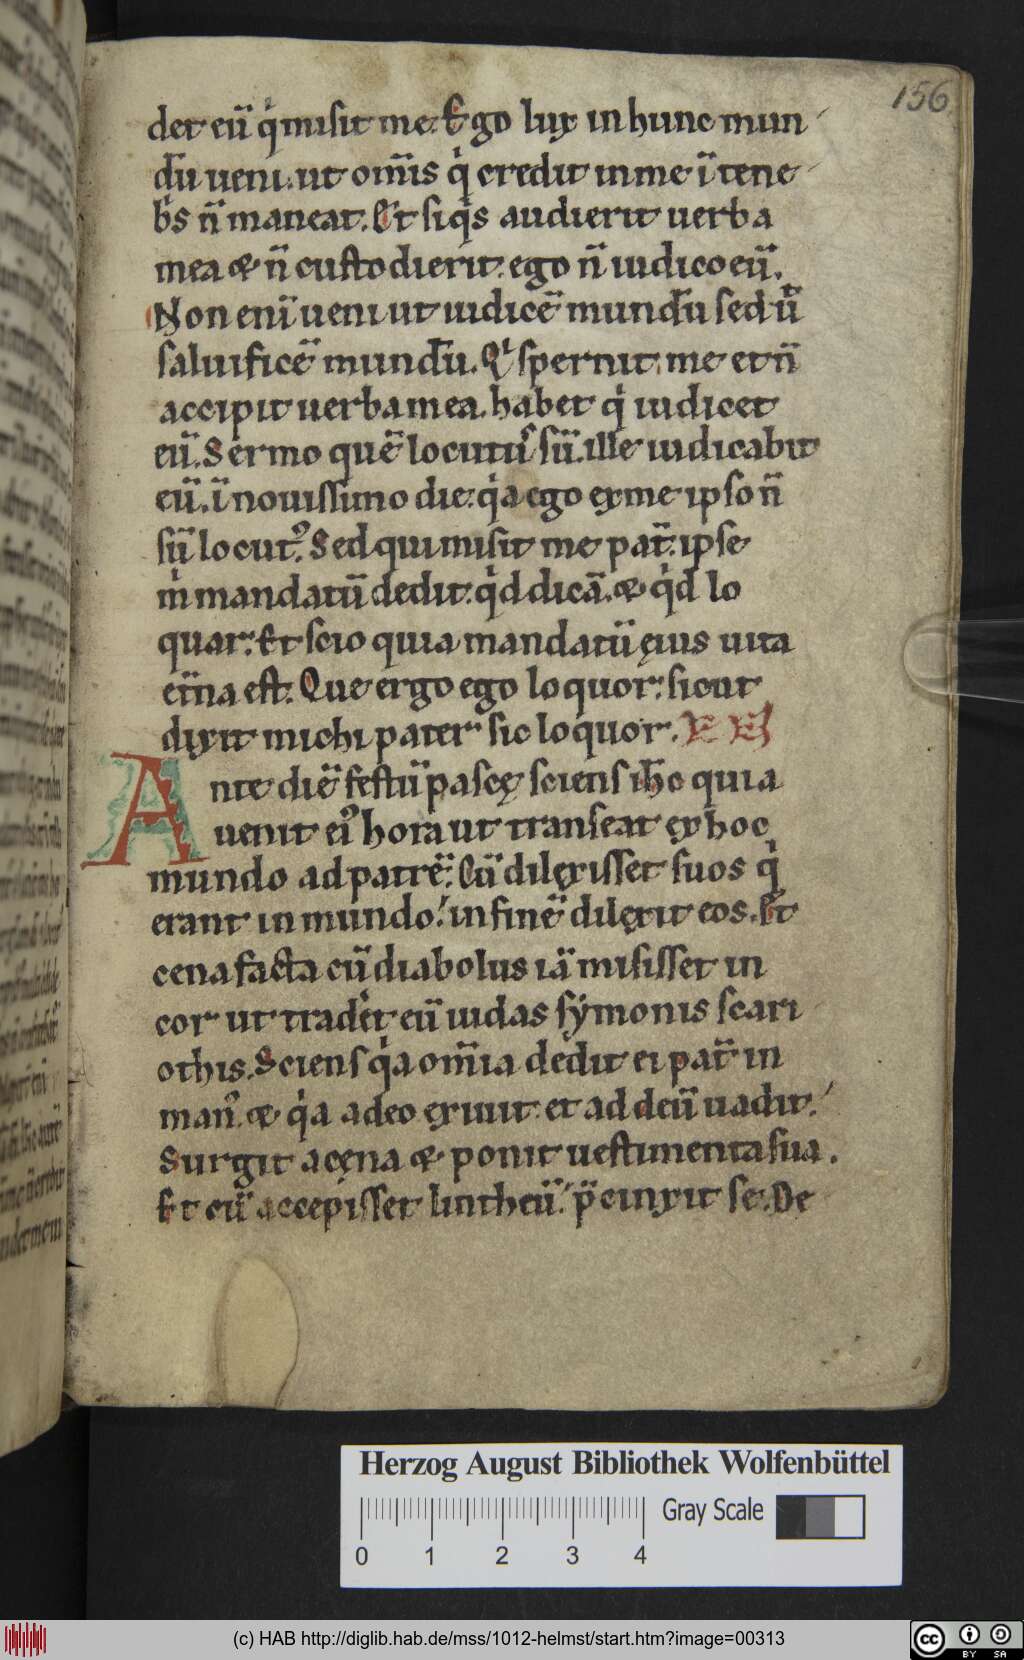 156
det eu̅ qͥ misit me. Ego lux in hunc mun
du̅ ueni. ut om̅is qͥ credit in me i̅ tene
b̅s n̅ maneat. Et siqͥs audierit uerba
mea & n̅ custodierit. ego n̅ iudico eu̅.
Non eni̅ ueni ut iudice̅ mundu̅ sed ut
saluifice̅ mundu̅. Qͥ spernit me et n̅
accipit uerba mea. habet qͥ iudicet
eu̅. Sermo que̅ locutus su̅. ille iudicabit
eu̅. i̅ nouissimo die. qͥa ego ex me ipso n̅
su̅ locutꝰ. Sed qui misit me pat̅. ipse
mͥ mandatu̅ dedit. qͥd dica̅. & qͥd lo
quar. Et scio quia mandatu̅ ęius uita
et̅na est. Que ergo ego loquor. sicut
dixit michi pater sic loquor.
Ante die̅ festu̅ pascę sciens ih̅c quia
uenit eiꝰ hora ut transeat ęx hoc
mundo ad patre̅. Cu̅ dilęxisset suos qͥ
erant in mundo. in fine̅ dilęxit eos. Et
cena facta cu̅ diabolus ia̅ misisset in
cor ut traderet eu̅ iudas symonis scari
othis. Sciens qͥa om̅ia dedit ei pat̅ in
manꝰ. & qͥa a deo ęxiuit et ad deu̅ uadit.
Surgit a cęna & ponit uestimenta sua.
Et cu̅ accepisset lintheu̅. p̅cinxit se. De
Herzog August Bibliothek Wolfenbüttel
0 1 2 3 4 Gray Scale
(c) HAB http://diglib.hab.de/mss/1012-helmst/start.htm?image=00313
cc BY SA